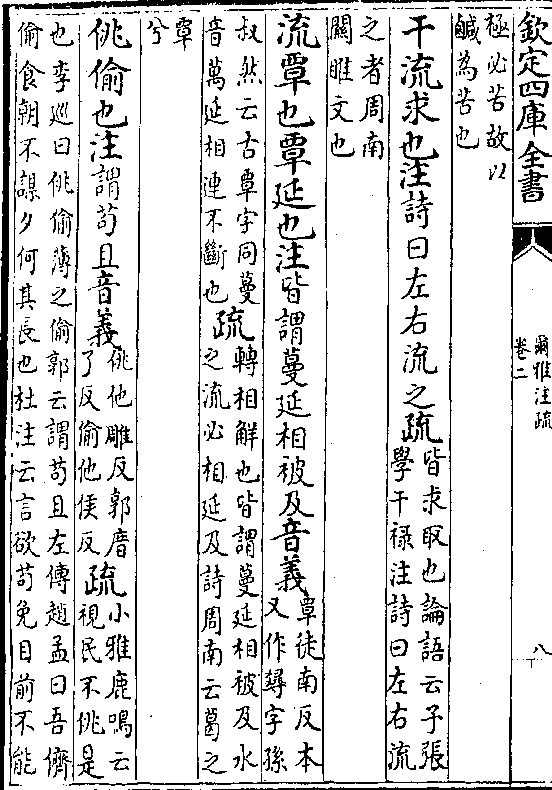 欽定四庫全書
爾雅注疏
卷二
八
極必苦故以
鹹為苦也
干流求也注詩曰左右流之疏
皆求取也論語云子張
學干禄注詩曰左右流
之者周南
關雎文也
流覃也覃延也注皆謂蔓延相被及音義
覃徒南反本
又作蕁字孫
叔然云古覃字同蔓
音萬延相連不斷也
疏
轉相解也皆謂蔓延相被及水
之流必相延及詩周南云葛之
覃
兮
佻偷也注謂苟且音義
佻他雕反郭唐
了反偷他侯反
疏
小雅鹿鳴云
視民不佻是
也李巡曰佻偷薄之偷郭云謂苟且左傳趙孟曰吾儕
偷食朝不謀夕何其長也杜注云言欲苟免目前不能